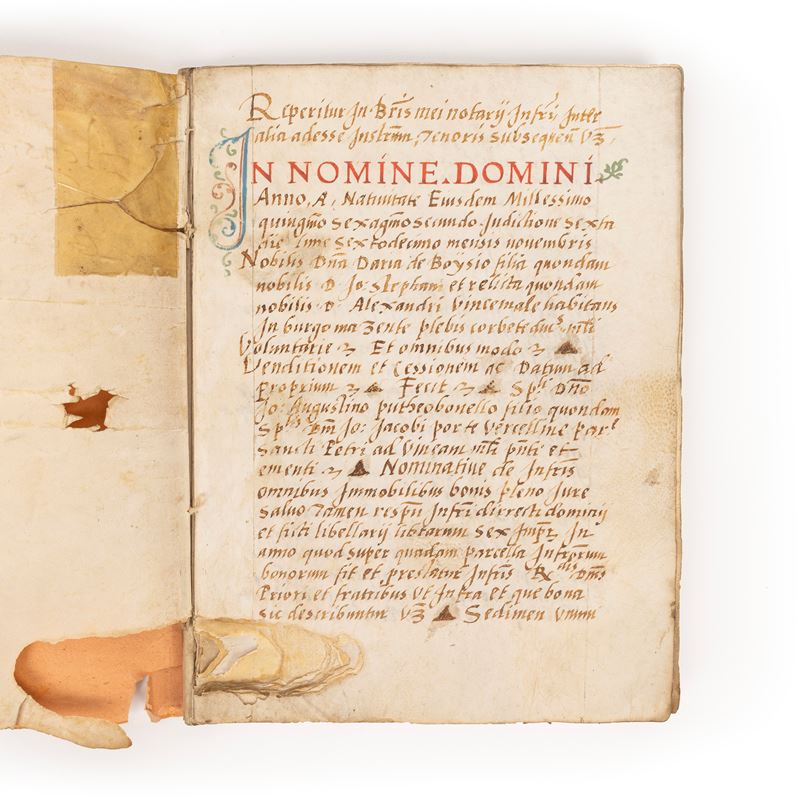 Reperitur In Breis mei notarij Infri Inter
alia adesse Instrum Tenoris subsequen Vz
IN NOMINE DOMINI
Anno, A, Nativitate Eiusdem Millessimo
quingmo sexagmo secundo. Judictione sexta
die sextodecimo mensis novembris
Nobilis Dna Daria de Boysio filia quondam
nobilis D. Jo: stephani et relicta quondam
nobilis D. Alexandri Vincemale habitans
In burgo mazente plebis corbete duc mli
Voluntarie Et omnibus modo
Venditionem et Cessionem ac Datum ad
proprium Fecit Spli Dno
Jo: Augustino putheobonello filio quondam
Spli Dni Jo: Jacobi porte vercelline par
Sancti Petri ad vineam mli pnte et
ementi Nominative de Infris
omnibus Immobilibus bonis pleno Jure
salvo Tamen respu Infri dirrecti dominij
et ficti libellarij librarum sex Impr In
anno quod super quadam parcella Infrorum
bonorum fit et prestatur Infris Rdis Dnis
Priori et fratribus ut Infra et que bona
sic describuntur Vz Sedimen unum